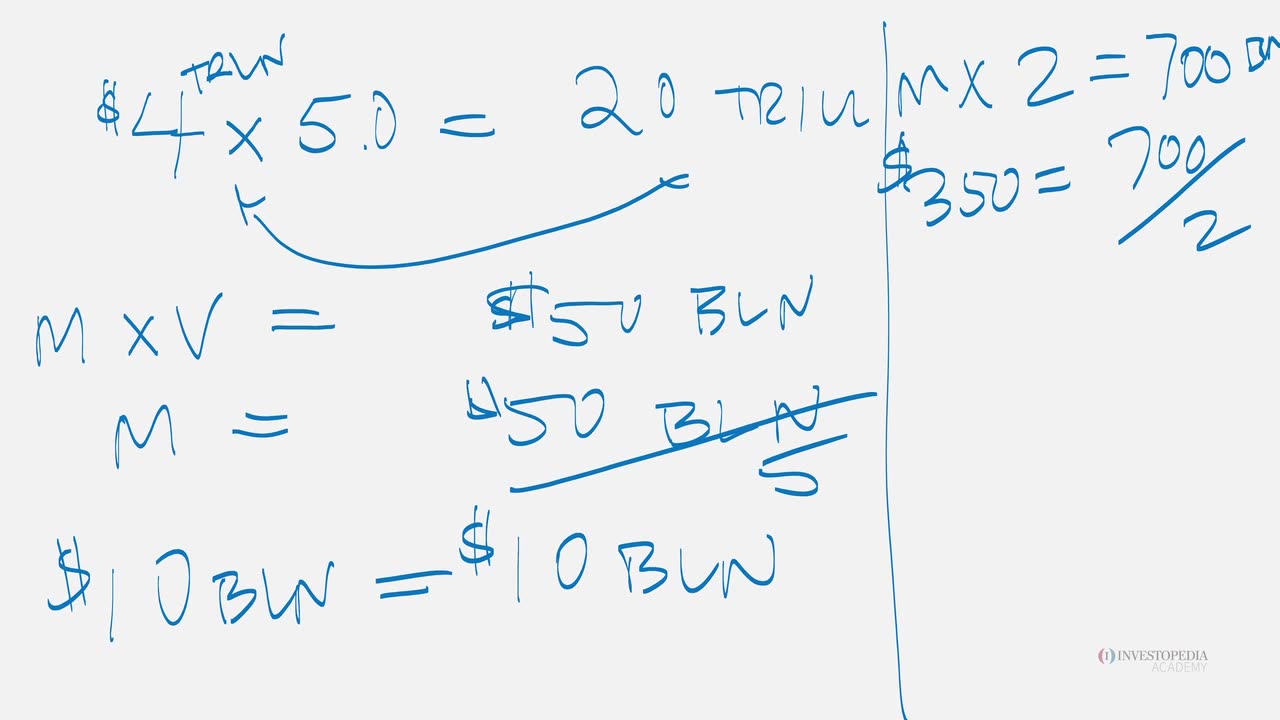 $4 TRLN x 5.0 = 20 TRILL
M x V = $50 BLN
M = $50 BLN / 5
$10 BLN = $10 BLN
M x 2 = 700 BN
$350 = 700 / 2
INVESTOPEDIA
ACADEMY